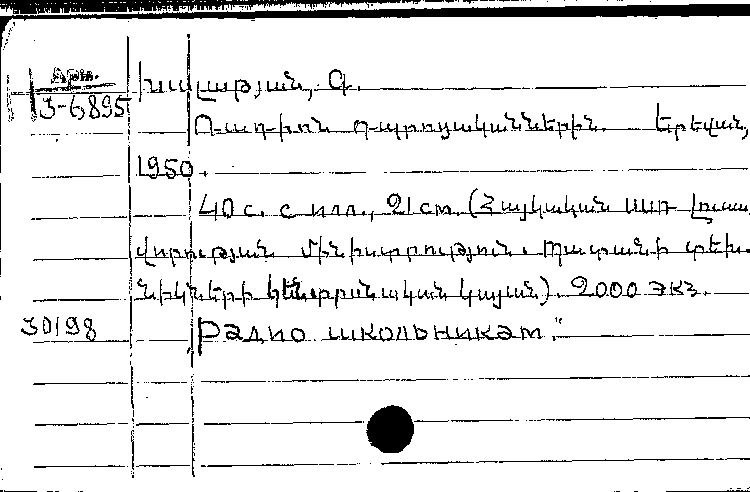 Արտ.
3-6895
Խալաթյան, Գ.
Ռադիոն դպրոցականներին. Երևան,
1950.
40 с. с илл., 21 cm. (Հայկական ՍՍՌ լուսա
վորության մինիստրություն. Պատանի տեխ.
նիկների կենտրոնական կայան). 2000 экз.
30198
"Радио школьникам."